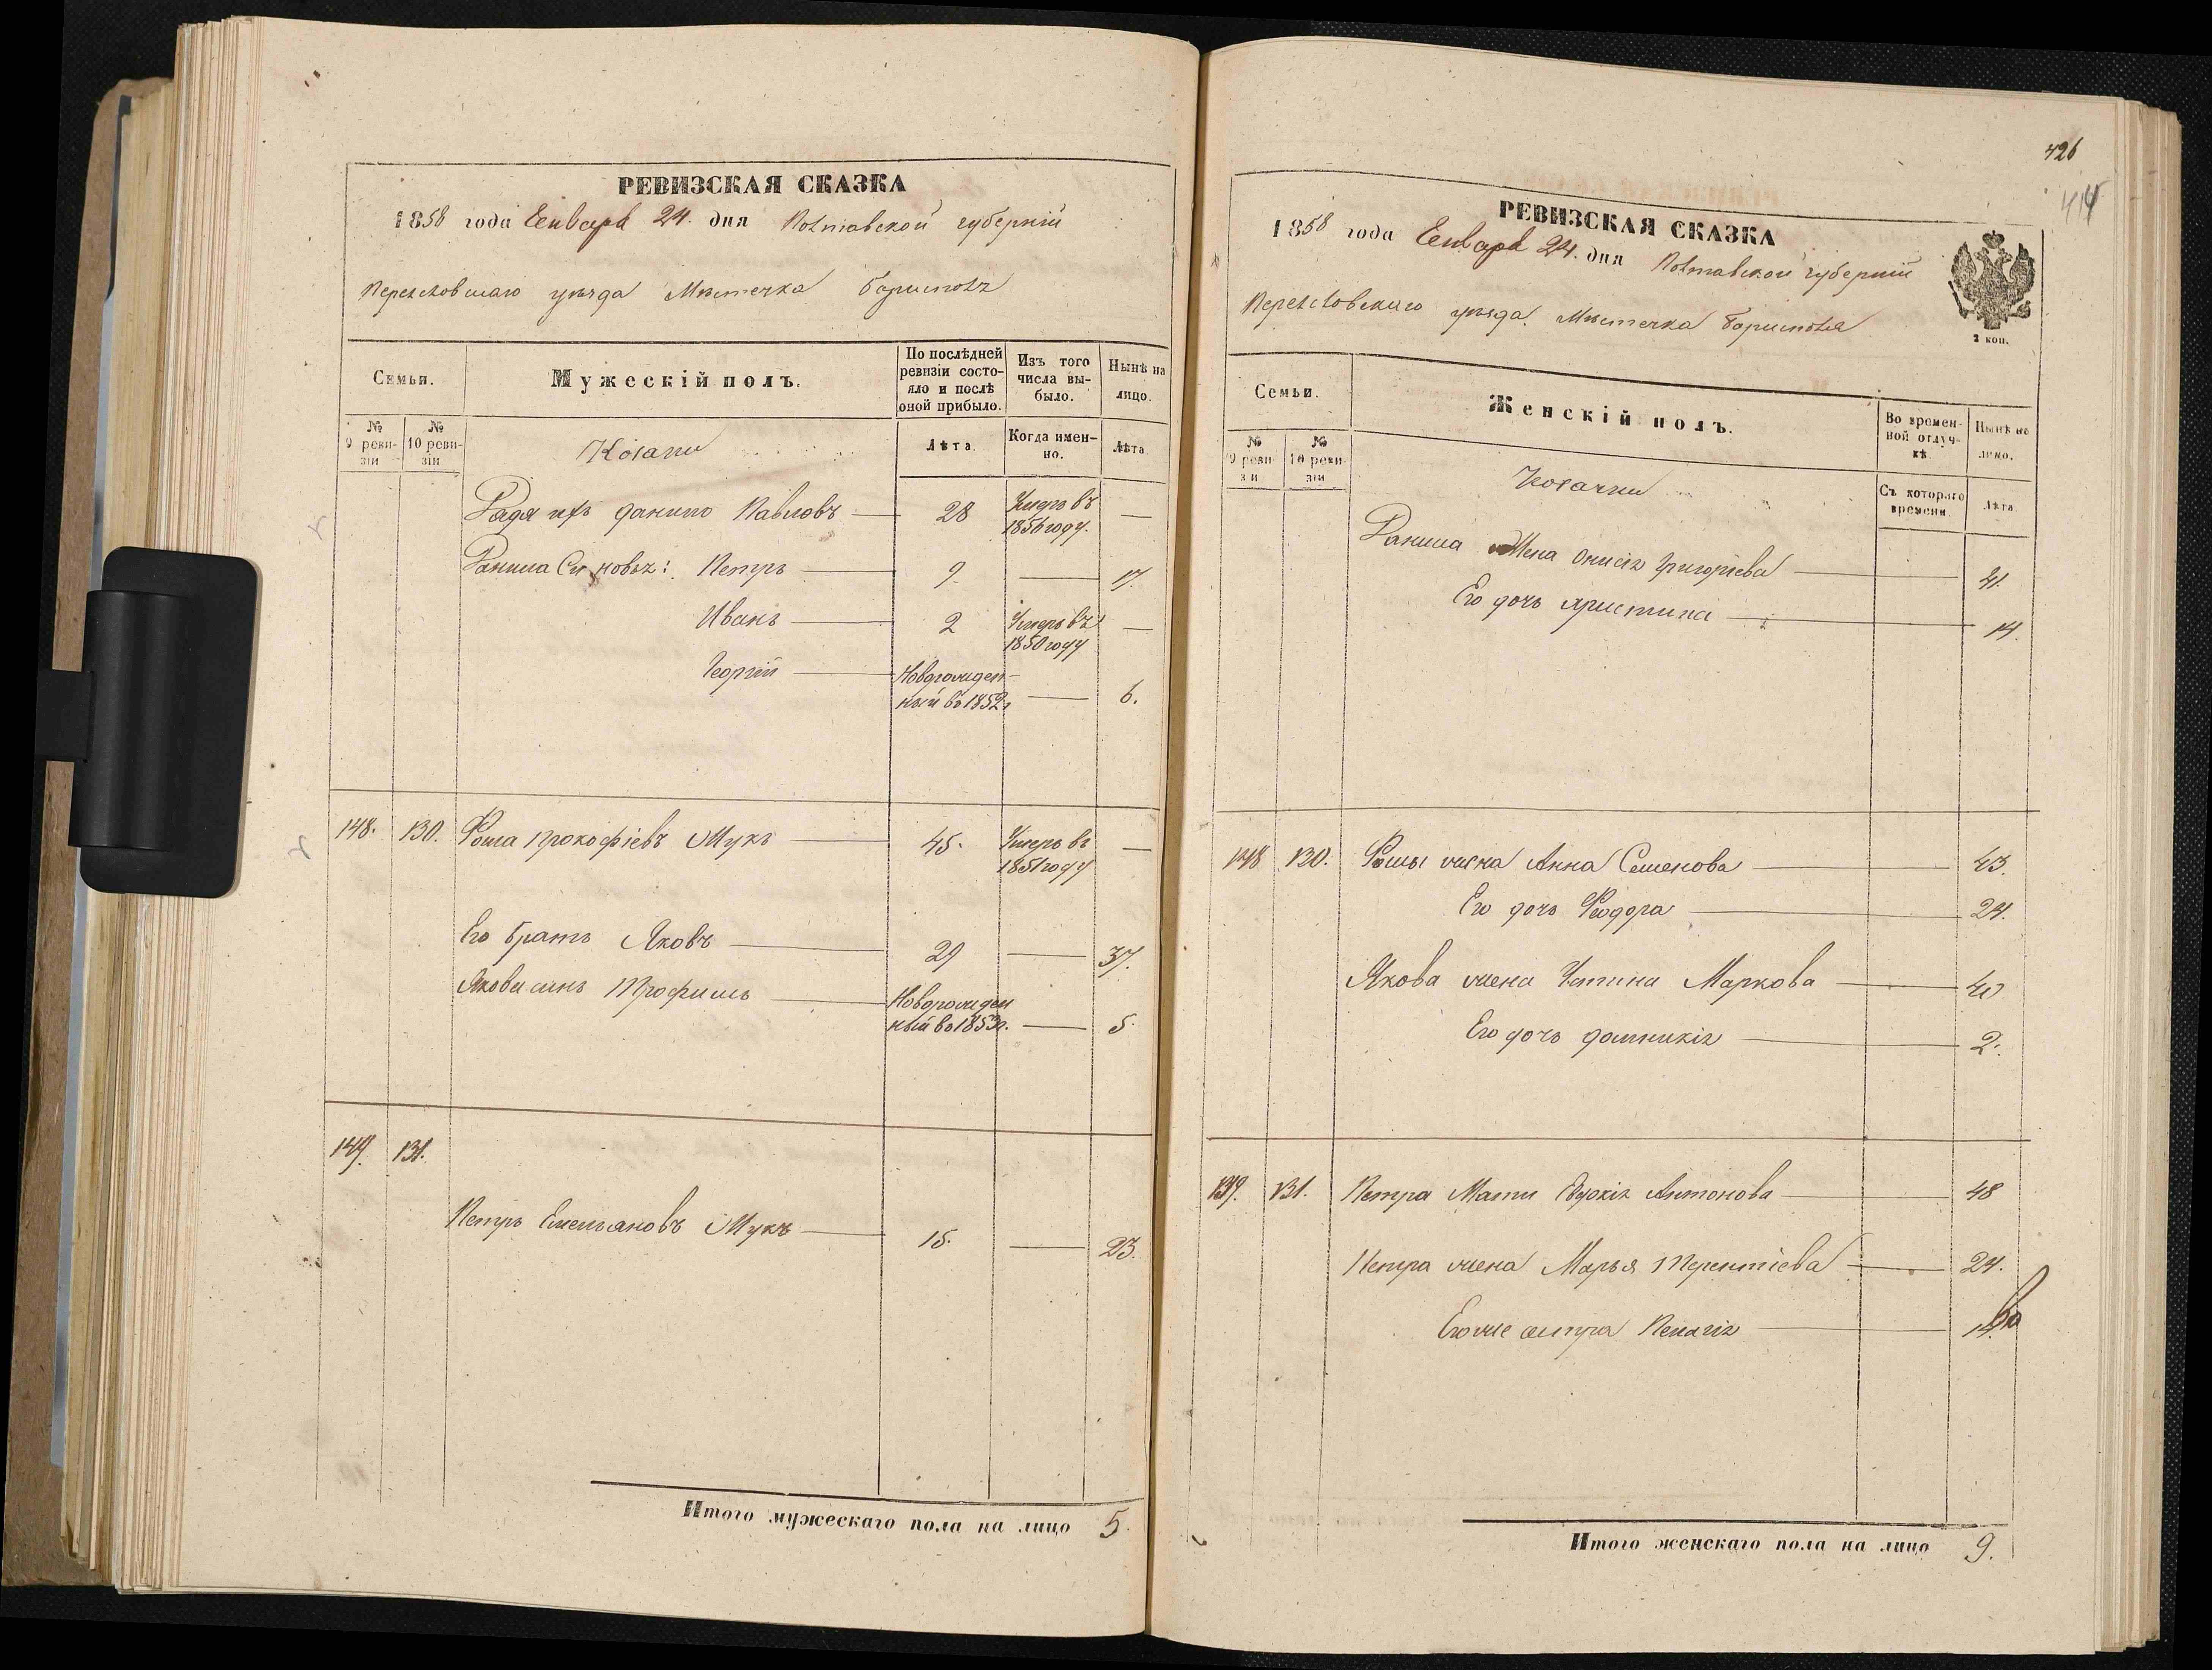 РЕВИЗСКАЯ СКАЗКА
1858 года Генваря 24. дня Полтавской губерніи
Переяловскаго уѣзда Мѣстечка Борисполя
Семьи.
Мужескій полъ.
По послѣдней ревизіи состояло и послѣ оной прибыло.
Изъ того числа выбыло.
Нынѣ на лицо.
№ 9 ревизіи
№ 10 ревизіи
Козаки
Лѣта.
Когда именно.
Лѣта
Дядя ихъ Данило Павловъ 28 Умеръ въ 1856 году. —
Данила Сыновья: Петръ 9. — 17.
Иванъ 2 Умеръ въ 1850 году —
Георгій Новорожденный въ 1852 г — 6.
148. 130. Фома Прокофіевъ Мукъ 45. Умеръ въ 1851 году —
Его братъ Яковъ 29 — 37.
Якова сынъ Трофимъ Новорожденный въ 1853 г. — 5.
149. 131.
Петръ Емельяновъ Мукъ 15. — 23.
Итого мужескаго пола на лицо 5.
426
414
РЕВИЗСКАЯ СКАЗКА
1858 года Генваря 24. дня Полтавской губерніи
Переяловскаго уѣзда Мѣстечка Борисполя
2 коп.
Семьи.
Женскій полъ.
Во временной отлучкѣ.
Нынѣ на лицо.
№ 9 ревизіи
№ 10 ревизіи
Козачки
Съ котораго времени
Лѣта
Данила Жена Онисія Григоріева 41.
Его дочь Христина 14.
148 130. Фомы жена Анна Семенова 43.
Его дочь Феодора 24.
Якова жена Устина Маркова 40
Его дочь Домникія 2.
149. 131. Петра Мати Евдокія Антонова 48
Петра жена Марья Терентіева 24.
Его же сестра Пелагія
Итого женскаго пола на лицо 9.